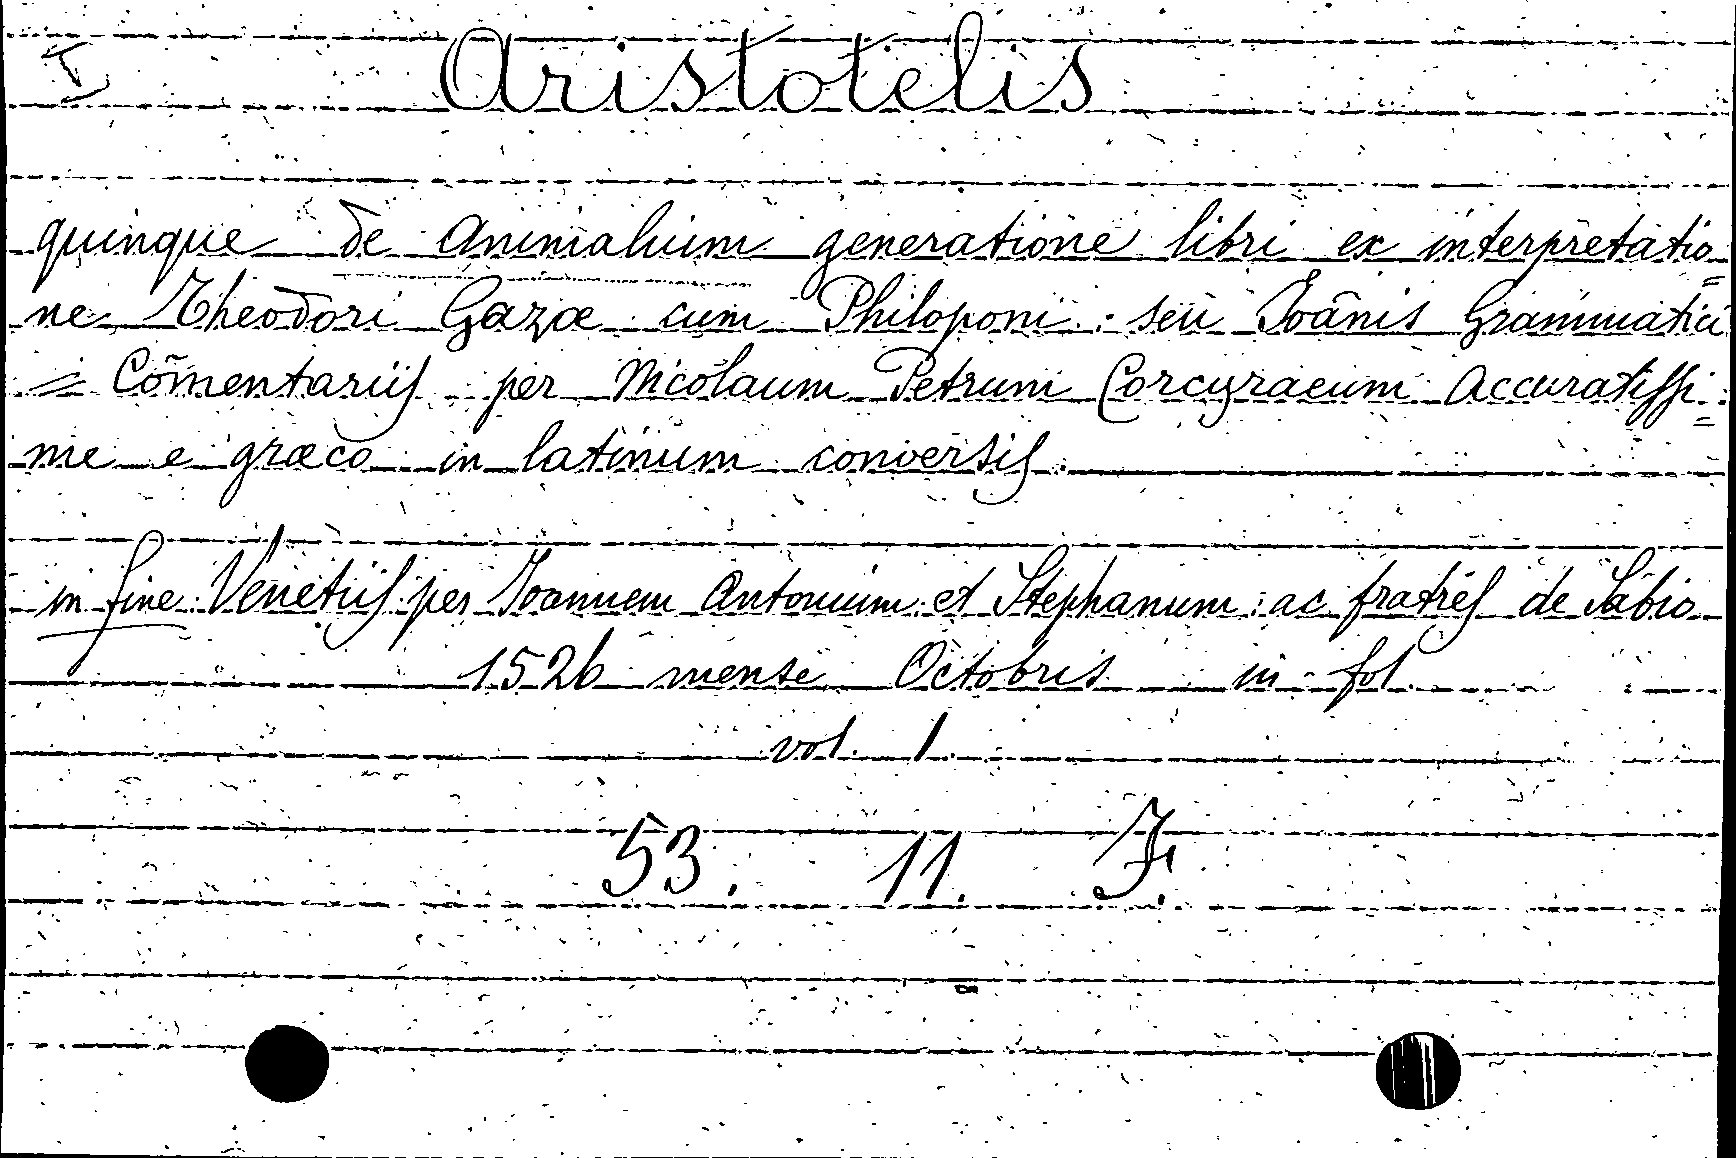 I Aristotelis
quinque de Animalium generatione libri ex interpretatio=
ne Theodori Gazæ cum Philoponi: seu Joānis Grammatici
= Cōmentariis per Nicolaum Petrum Corcyraeum Accuratissi=
me e græco in latinum conversis.
in fine Venetiis per Joannem Antonium et Stephanum ac fratres de Sabio
1526 mense Octobris in fol.
vol. 1.
53. 11. F.